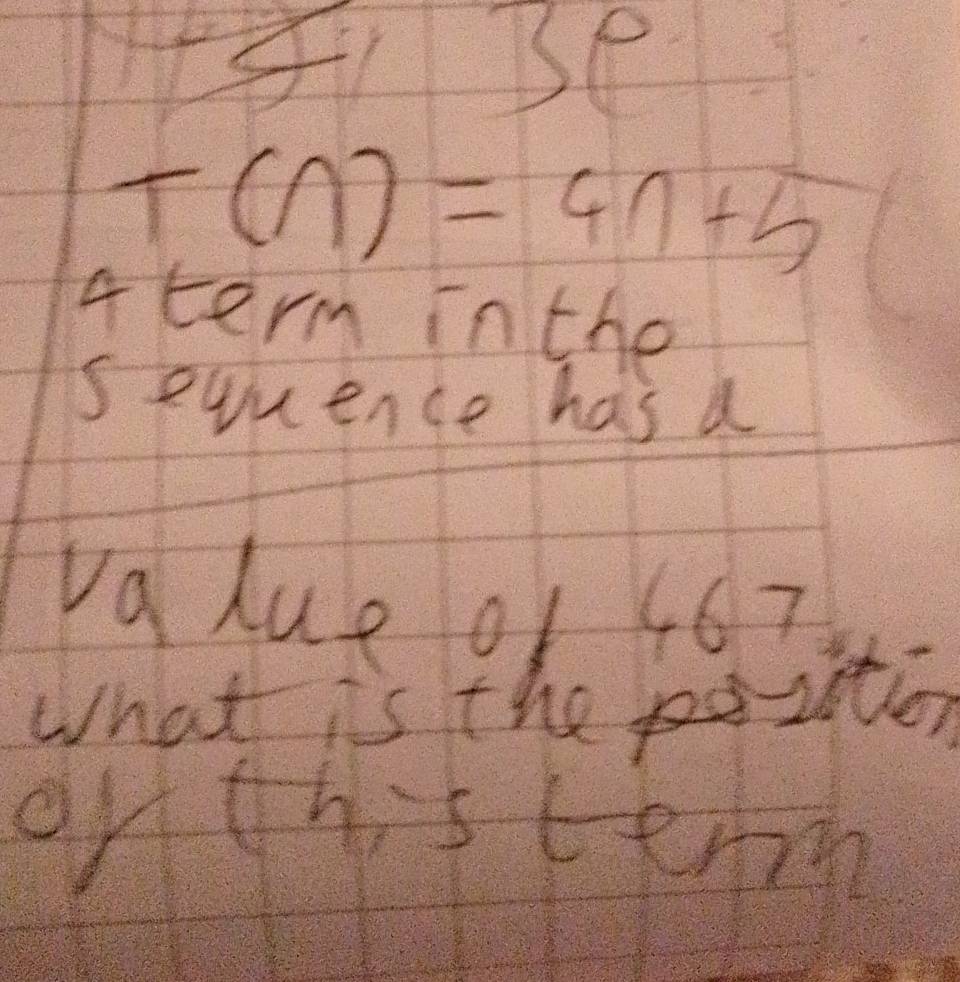 3e
T(n) = 4n+5
A term in the
sequence has a
value of 467
what is the position
of this term